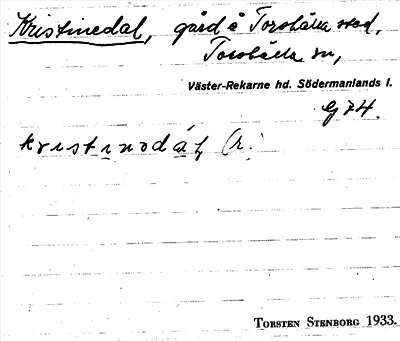 Kristinedal, gård å Torshälla stad,
Torshälla sn,
Väster-Rekarne hd. Södermanlands l.
G 74.
kristinodáɫ (r.
TORSTEN STENBORG 1933.